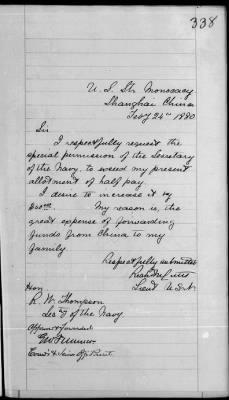 338
U. S. Str Monocacy
Shanghai China
Feby 24th 1880
Sir
I respectfully request the
special permission of the Secretary
of the Navy, to exceed my present
allotment of half pay.
I desire to increase it by
My reason is, the
great expense of forwarding
funds from China to my
family
Respectfully submitted
Lieut U.S.N.
Hon
R. W. Thompson
Secty of the Navy
Approved & forwarded